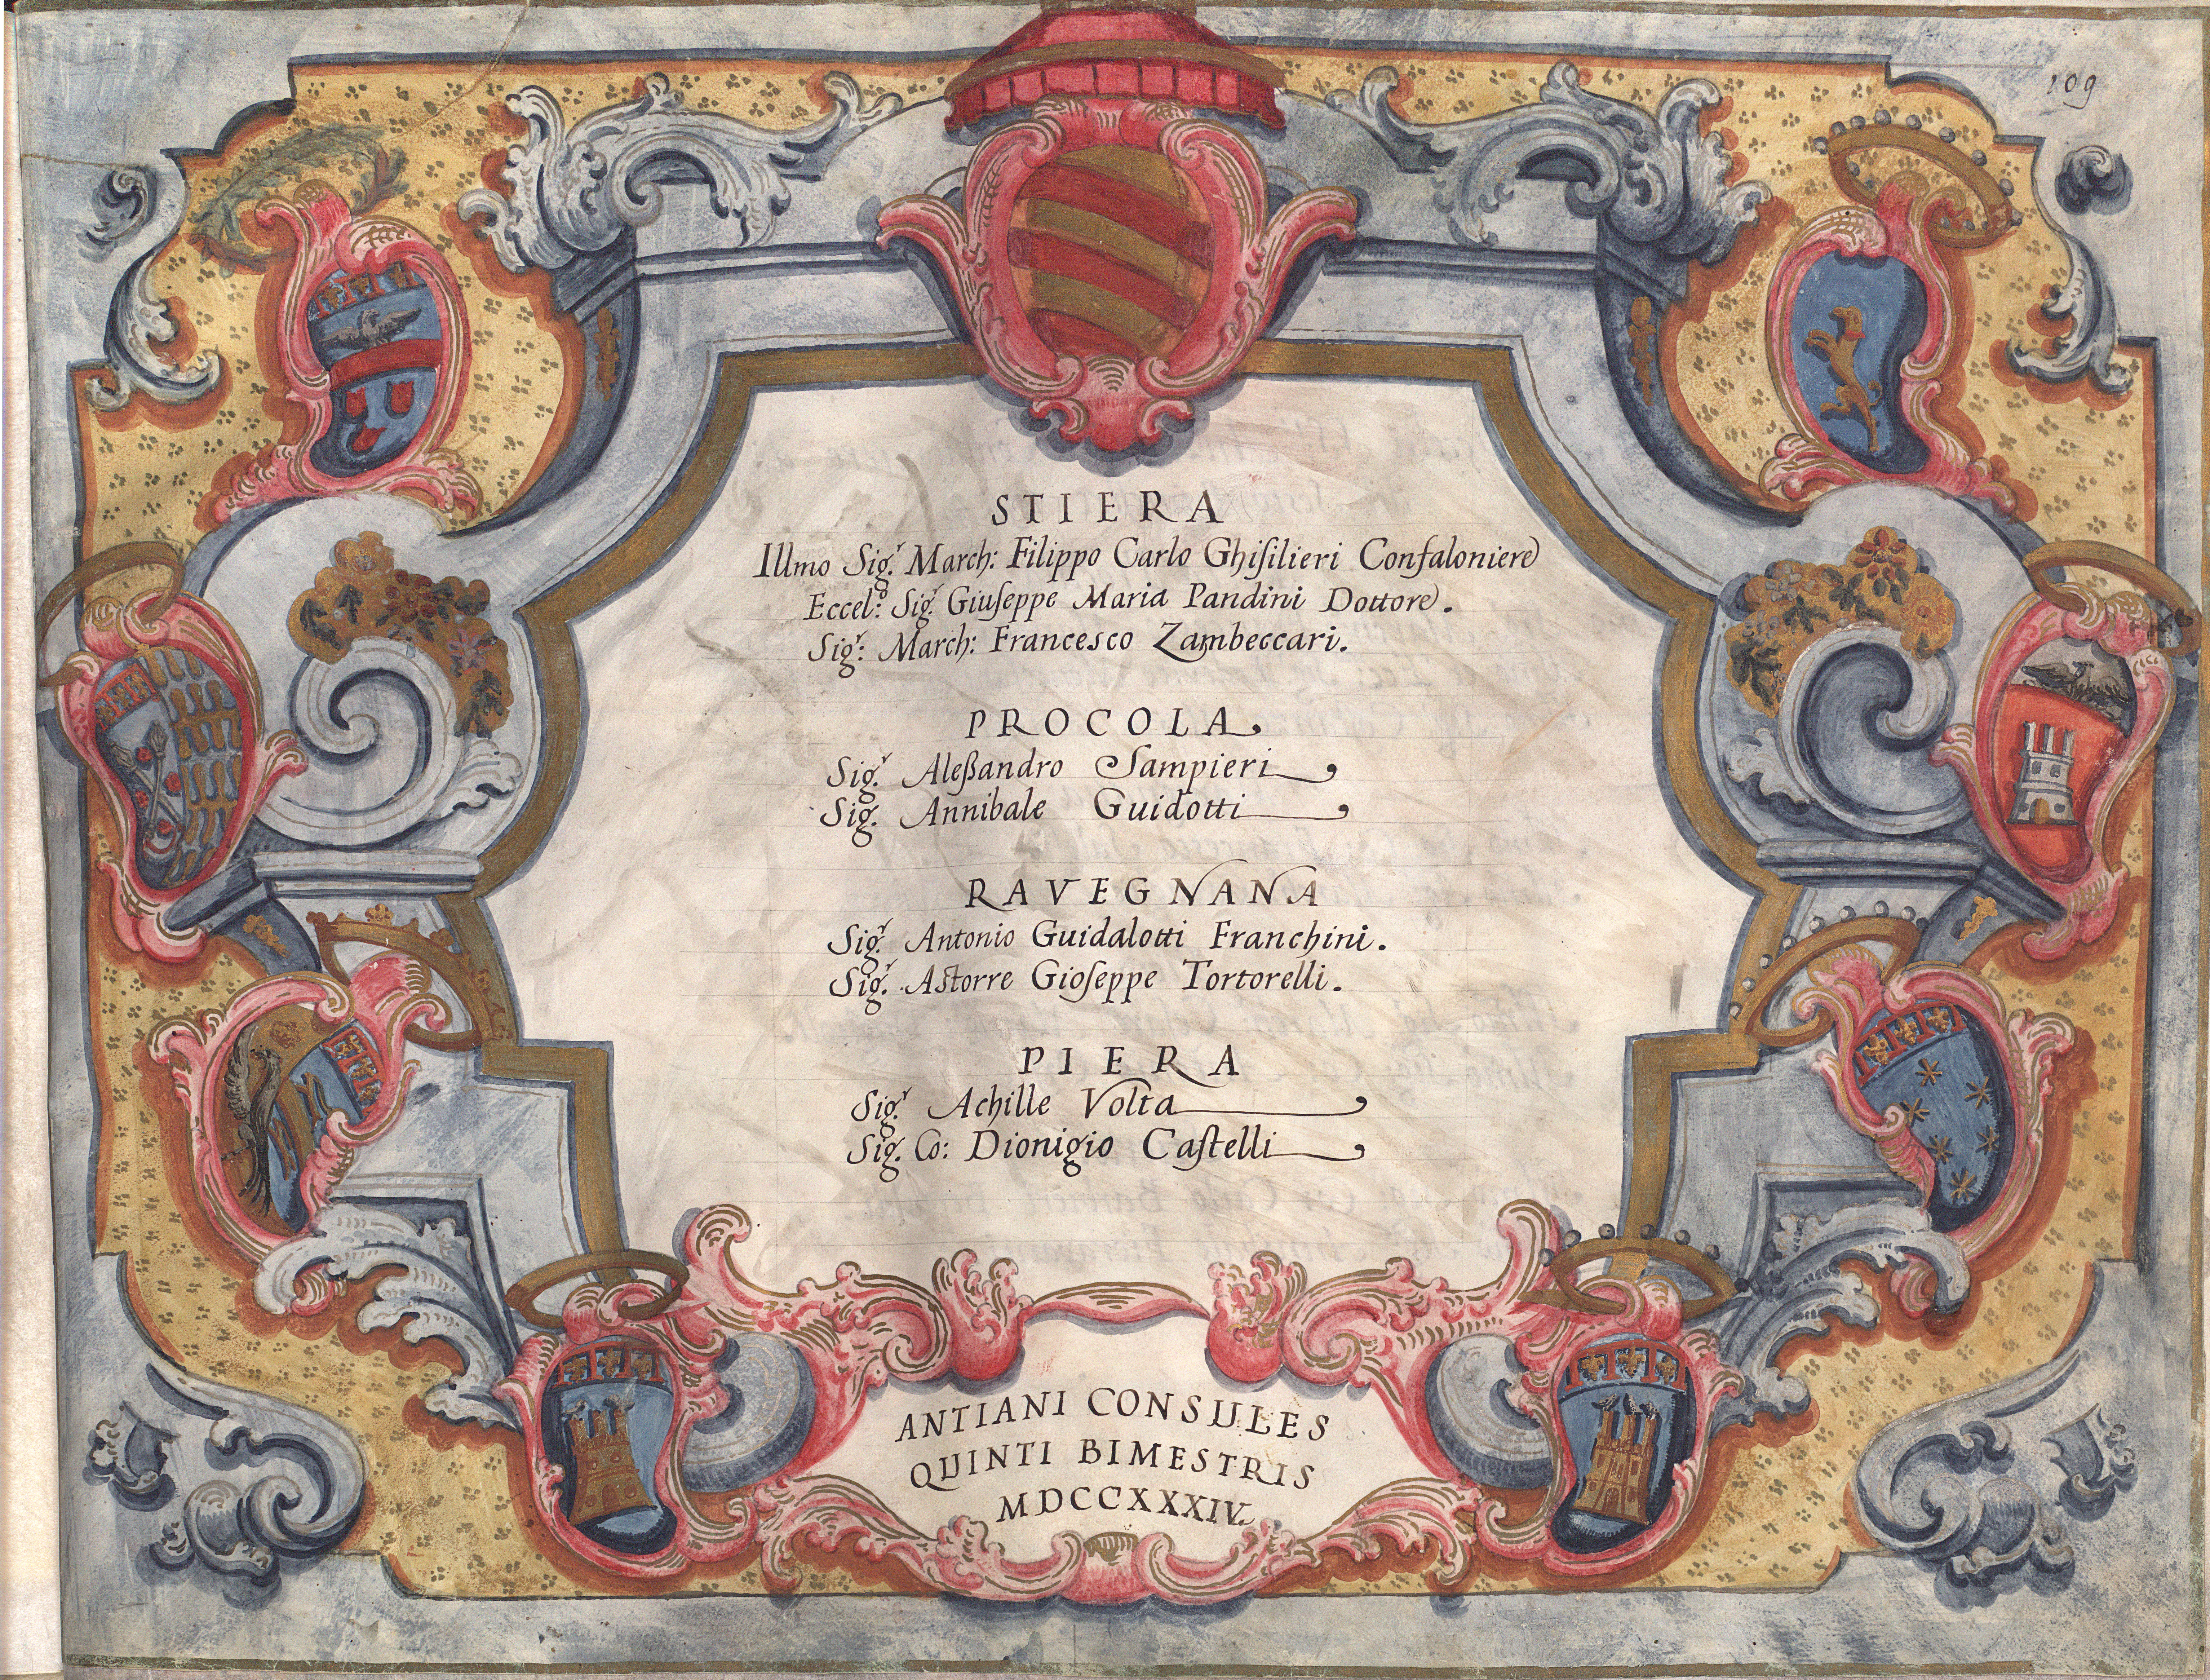 109
STIERA
Illmo Sigr. March: Filippo Carlo Ghiſilieri Confaloniere
Eccel: Sigr. Giuſeppe Maria Pandini Dottore.
Sigr: March: Francesco Zambeccari.
PROCOLA
Sigr. Aleßandro Sampieri
Sig. Annibale Guidotti
RAVEGNANA
Sigr. Antonio Guidalotti Franchini.
Sigr. Astorre Gioſeppe Tortorelli.
PIERA
Sigr. Achille Volta
Sig. Co: Dionigio Caſtelli
ANTIANI CONSULES
QUINTI BIMESTRIS
MDCCXXXIV.